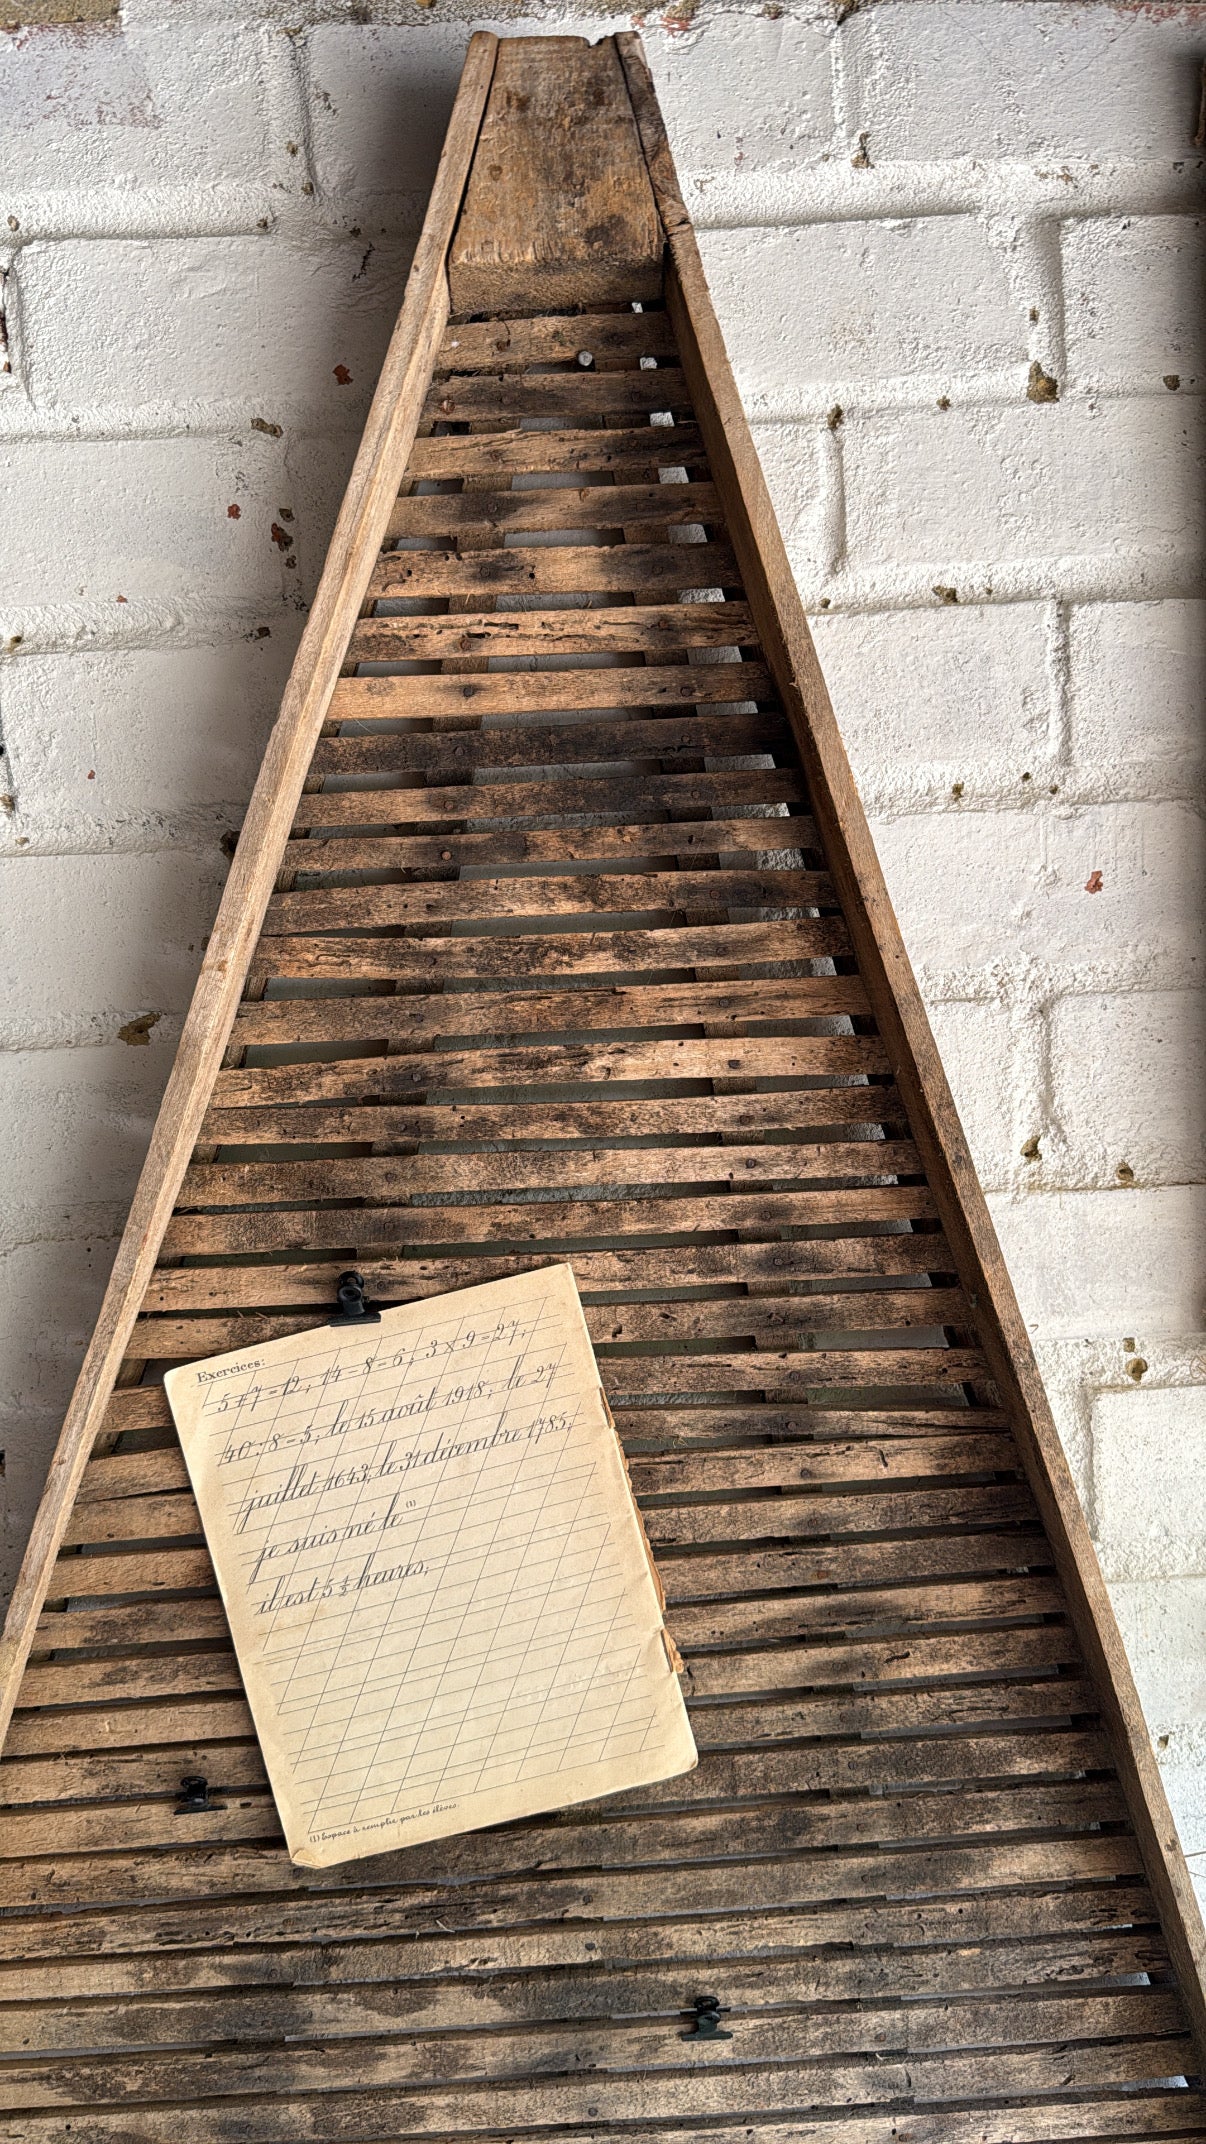 Exercices:
5+7=12; 14-8=6; 3×9=27;
40:8=5; le 15 août 1918; le 27
juillet 1643; le 31 décembre 1785;
je suis né le (1)
il est 5 ½ heures;
(1) Espace à remplir par les élèves.